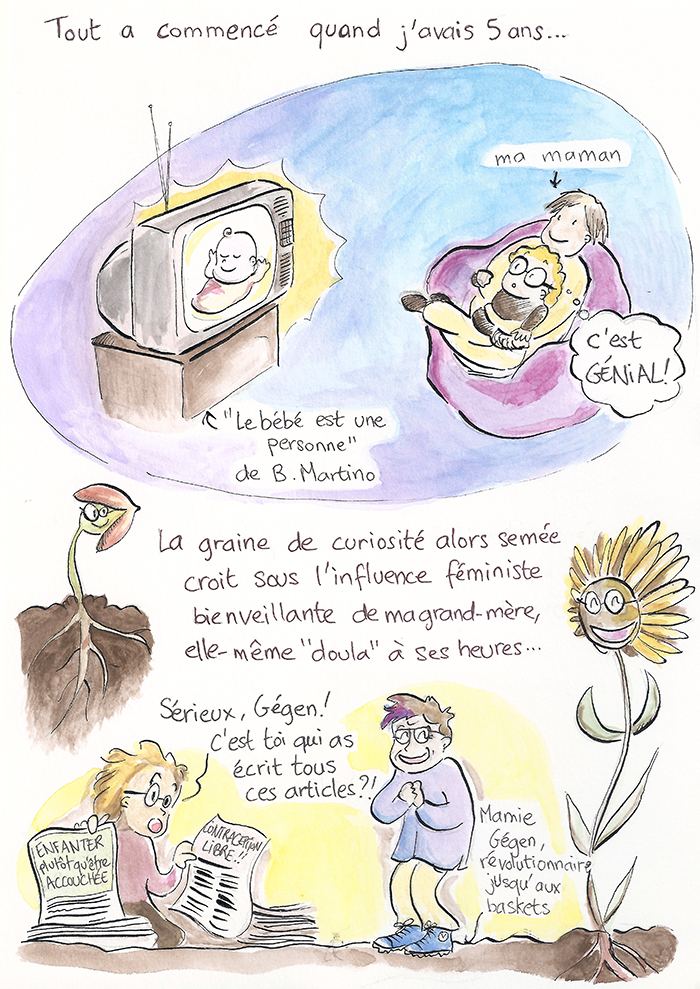 Tout a commencé quand j'avais 5 ans...
ma maman
c'est
GÉNIAL!
"Le bébé est une
personne"
de B. Martino
La graine de curiosité alors semée
croit sous l'influence féministe
bienveillante de ma grand-mère,
elle-même "doula" à ses heures...
Sérieux, Gégen!
C'est toi qui as
écrit tous
ces articles?!
ENFANTER
plutôt qu'être
ACCOUCHÉE
CONTRACEPTION
LIBRE!!
Mamie
Gégen,
révolutionnaire
jusqu'aux
baskets